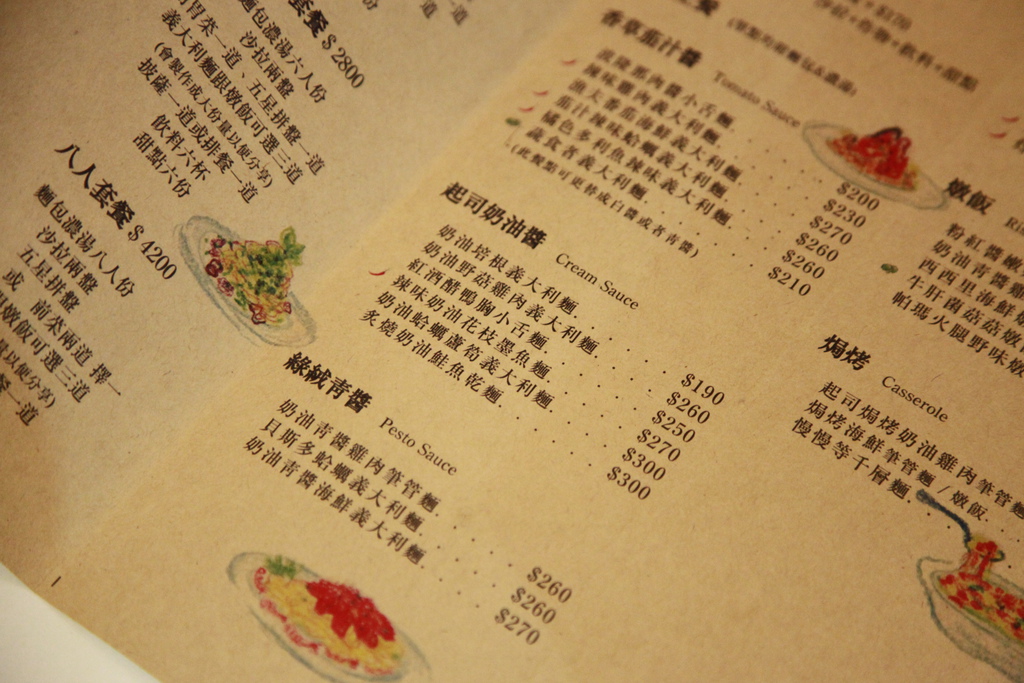 套餐 $ 2800
麵包濃湯六人份
沙拉兩盤
前菜一道、五星拼盤一道
義大利麵跟燉飯可選三道
(會製作成大份量以便分享)
披薩一道或排餐一道
飲料六杯
甜點六份
八人套餐 $ 4200
麵包濃湯八人份
沙拉兩盤
五星拼盤
或 前菜兩道 擇一
燉飯可選三道
以便分享)
一道
香草茄汁醬 Tomato Sauce
肉醬小舌麵. $200
辣味雞肉義大利麵. $230
漁夫番茄海鮮義大利麵. $270
茄汁辣味蛤蠣義大利麵. $260
橘色多利魚辣味義大利麵. $260
蔬食者義大利麵. $210
(此餐點可更替成白醬或者青醬)
起司奶油醬 Cream Sauce
奶油培根義大利麵. $190
奶油野菇雞肉義大利麵. $260
紅酒醋鴨胸小舌麵. $250
辣味奶油花枝墨魚麵. $270
奶油蛤蠣蘆筍義大利麵. $300
炙燒奶油鮭魚乾麵. $300
綠絨青醬 Pesto Sauce
奶油青醬雞肉筆管麵. $260
貝斯多蛤蠣義大利麵. $260
奶油青醬海鮮義大利麵. $270
燉飯
粉紅醬嫩
奶油青醬雞
西西里海鮮
牛肝菌菇菇燉
帕瑪火腿野味燉
焗烤 Casserole
起司焗烤奶油雞肉筆管麵
焗烤海鮮筆管麵 / 燉飯.
慢慢等千層麵.